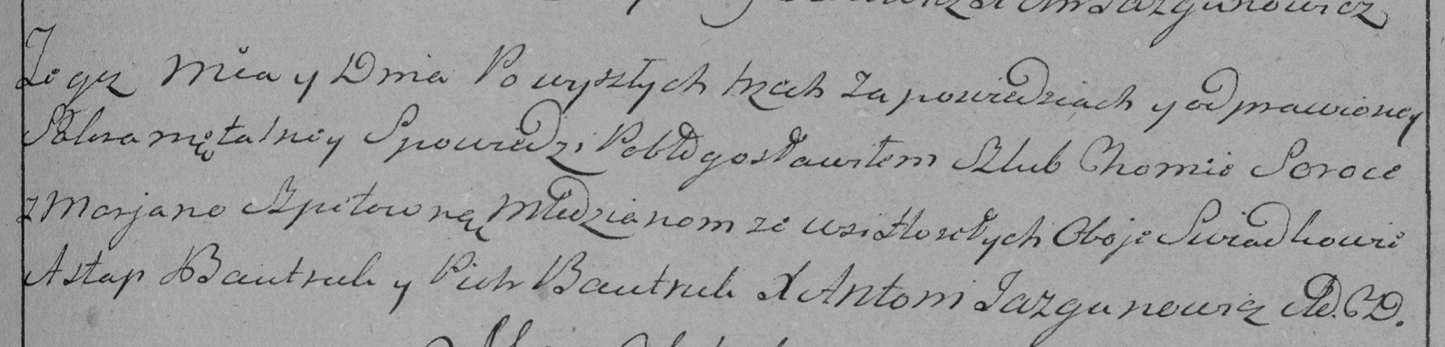 X Antoni Jazgunowicz
Tegoż Mca y Dnia Po wyszłych trzech Zapowiedziach y odprawioney
Sakramętalney Spowiedzi Pobłogosławiłem Szlub Chomie Soroce
z Marjano Szpiłowną Młodzianom ze wsi Horełych Oboje Swiadkowie
Astap Bautruk y Piotr Bautruk X Antoni Jazgunowicz AD.CD.